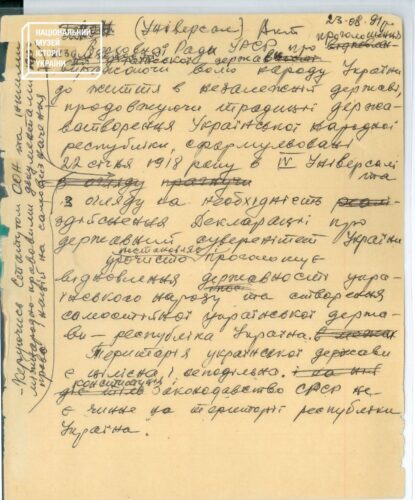 НАЦІОНАЛЬНИЙ
МУЗЕЙ
ІСТОРІЇ
УКРАЇНИ
23-08.91р.
(Універсал) Акт проголошення
Верховної Ради УРСР про
Виражаючи волю народу України
до життя в незалежній державі,
продовжуючи традиції держа-
вотворення Української народної
республіки, сформульовані
22 січня 1918 року в IV Універсалі
та
з огляду на необхідність
здійснення Декларації про
державний суверенітет України
урочисто проголошує
відновлення державності укра-
їнського народу та створення
самостійної української держа-
ви – республіка Україна.
Територія української держави
є цілісна і неподільна.
конституція і
Законодавство СРСР не
є чинне на території республіки
Україна.
- Керуючись Статутом ООН та іншими
міжнародно-правовими документами про
право націй на самовизначення